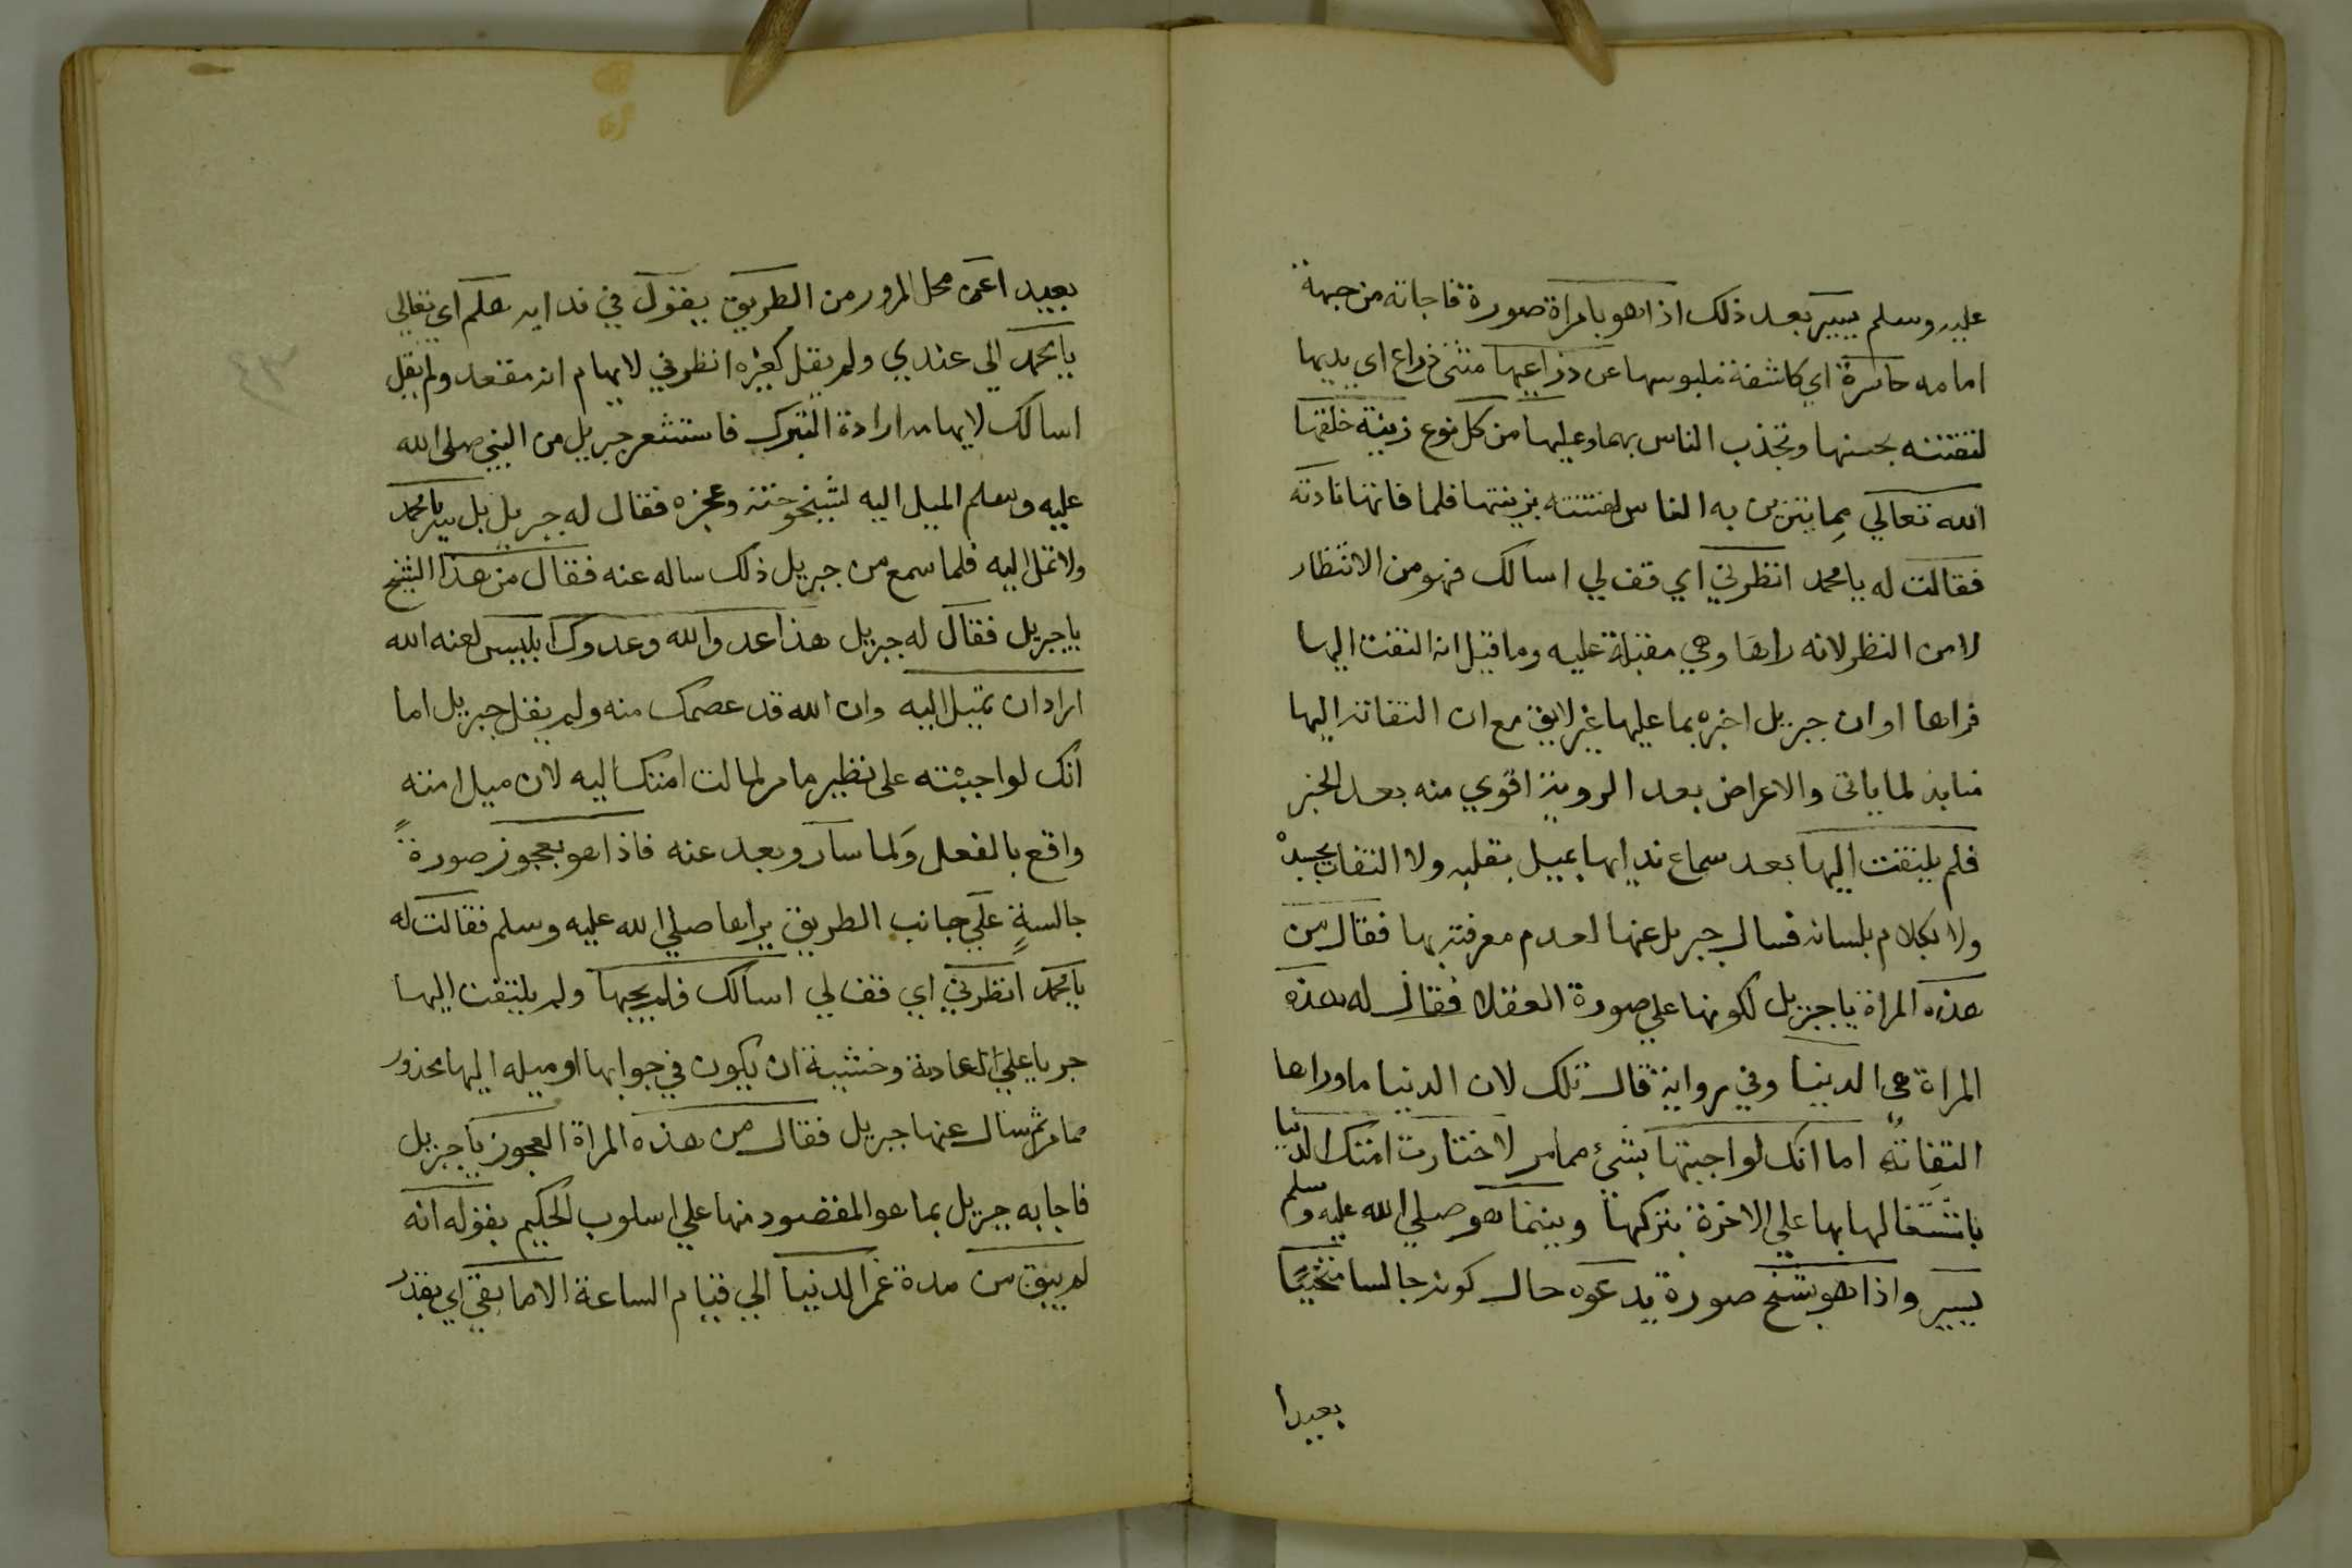 عليه وسلم يسير بعد ذلك اذا هو بامراة صورة فاجاته من جهة
امامه حاسرة اي كاشفة ملبوسها عن ذراعيها مثنى ذراع اي يديها
لتفتنه بحسنها وتجذب الناس بهما وعليها من كل نوع زينة خلقها
الله تعالي مما يتزين به الناس لفتنته بزينتها فلما فاتها نادته
فقالت له يا محمد انظرني اي قف لي اسالك فهو من الانتظار
لا من النظر لانه راها وهي مقبلة عليه وما قيل انه التفت اليها
فراها او ان جبريل اخبره بما عليها غير لايق مع ان التفاته اليها
منابذ لما ياتى والاعراض بعد الروية اقوي منه بعد الخبر
فلم يلتفت اليها بعد سماع ندايها بميل بقلبه ولا التفات بجسد
ولا بكلام بلسانه فسال جبريل عنها لعدم معرفته بها فقال من
هذه المراة يا جبريل لكونها علي صورة العقلا فقال له هذه
المراة هي الدنيا وفي رواية قال تلك لان الدنيا ماوراها
التفاته اما انك لو اجبتها بشئ مما مر لاختارت امتك الدنيا
باشتغالها بها علي الاخرة بتركها وبينما هو صلي الله عليه وسلم
يسير واذا هو بشيخ صورة يدعوه حال كونه جالسا متنحيا
بعيدا
بعيدا عن محل المرور من الطريق يقول في ندايه هلم اي تعالي
يا محمد الي عندي ولم يقل كغيره انظرني لايهام انه مقعد ولم يقل
اسالك لايهامه ارادة التبرك فاستشعر جبريل من النبي صلى الله
عليه وسلم الميل اليه لشيخوخته وعجزه فقال له جبريل بل سر يا محمد
ولا تمل اليه فلما سمع من جبريل ذلك ساله عنه فقال من هذا الشيخ
يا جبريل فقال له جبريل هذا عدو الله وعدوك ابليس لعنه الله
اراد ان تميل اليه وان الله قد عصمك منه ولم يقل جبريل اما
انك لو اجبته على نظير ما مر لمالت امتك اليه لان ميل امته
واقع بالفعل ولما سار وبعد عنه فاذا هو بعجوز صورة
جالسة علي جانب الطريق يراها صلي الله عليه وسلم فقالت له
يا محمد انظرني اي قف لي اسالك فلم يجبها ولم يلتفت اليها
جريا علي العادة وخشية ان يكون في جوابها او ميله اليها محذور
مما مر ثم سال عنها جبريل فقال من هذه المراة العجوز يا جبريل
فاجابه جبريل بما هو المقصود منها علي اسلوب الحكيم بقوله انه
لم يبق من مدة عمر الدنيا الي قيام الساعة الا ما بقي اي بقدر